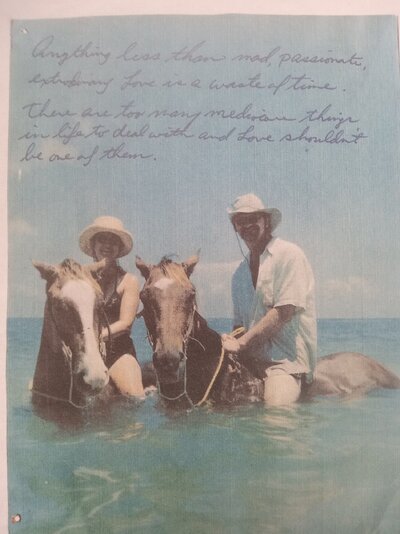 Anything less than mad, passionate,
extrodinary Love is a waste of time.
There are too many mediocre things
in life to deal with and Love shouldn't
be one of them.